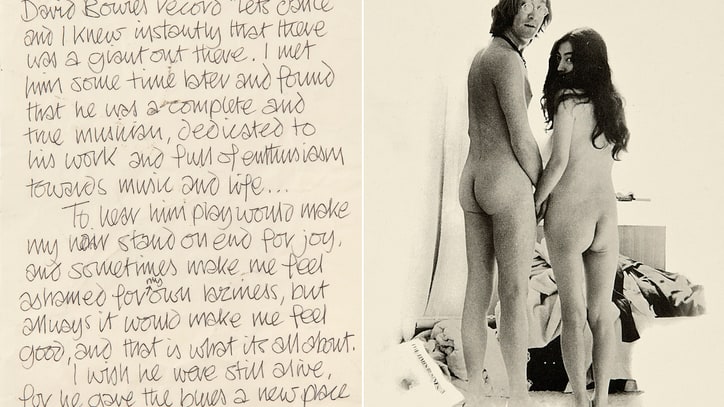 David Bowies record "Lets Dance
and I knew instantly that there
was a giant out there. I met
him some time later and found
that he was a complete and
true musician, dedicated to
his work and full of enthusiasm
towards music and life...
To hear him play would make
my hair stand on end for joy,
and sometimes make me feel
ashamed for my own laziness, but
allways it would make me feel
good, and that is what its all about.
I wish he were still alive,
for he gave the blues a new place